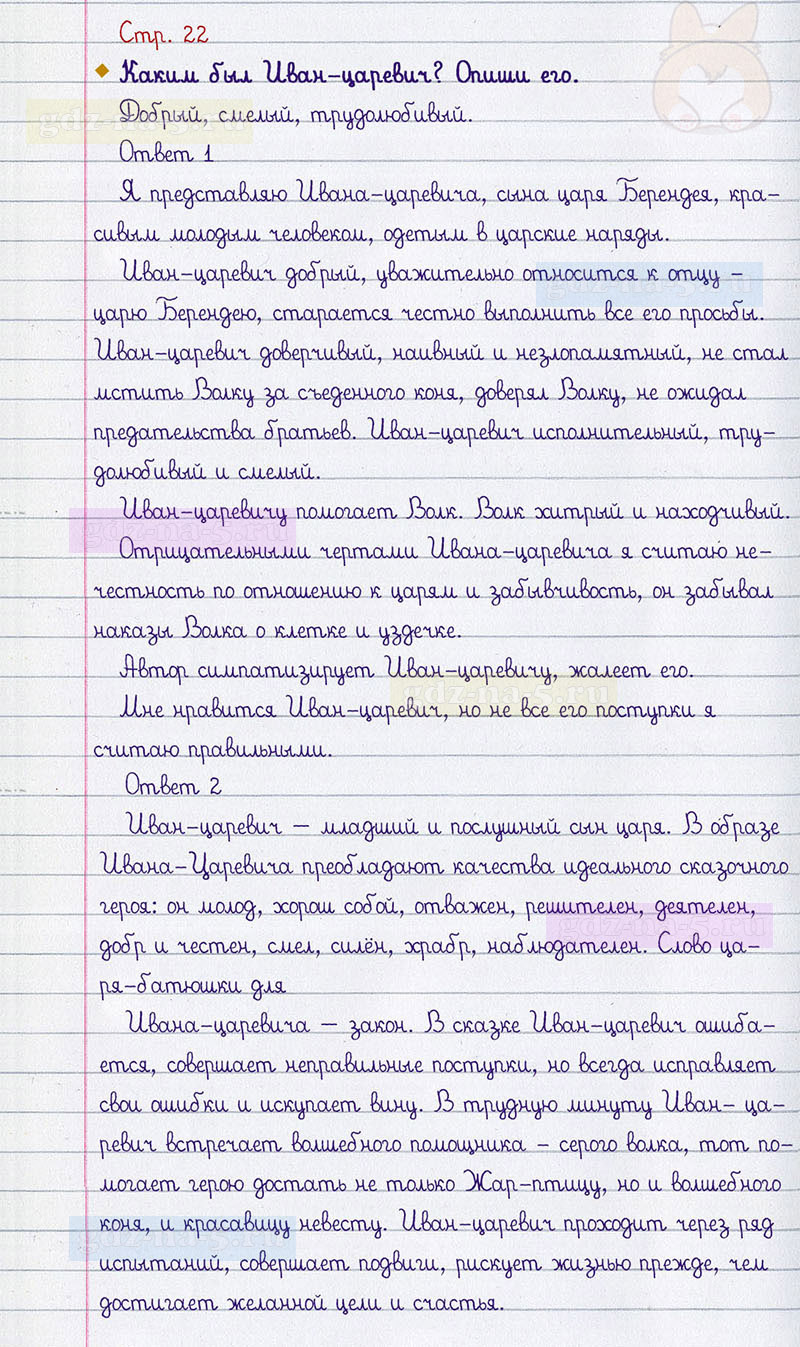 Стр. 22
Каким был Иван-царевич? Опиши его.
Добрый, смелый, трудолюбивый.
gdz-na-5.ru
Ответ 1
Я представляю Ивана-царевича, сына царя Берендея, кра-
сивым молодым человеком, одетым в царские наряды.
Иван-царевич добрый, уважительно относится к отцу –
gdz-na-5.ru
царю Берендею, старается честно выполнить все его просьбы.
Иван-царевич доверчивый, наивный и незлопамятный, не стал
мстить Волку за съеденного коня, доверял Волку, не ожидал
предательства братьев. Иван-царевич исполнительный, тру-
долюбивый и смелый.
Иван-царевичу помогает Волк. Волк хитрый и находчивый.
gdz-na-5.ru
Отрицательными чертами Ивана-царевича я считаю не-
честность по отношению к царям и забывчивость, он забывал
наказы Волка о клетке и уздечке.
Автор симпатизирует Иван-царевичу, жалеет его.
gdz-na-5.ru
Мне нравится Иван-царевич, но не все его поступки я
считаю правильными.
Ответ 2
Иван-царевич — младший и послушный сын царя. В образе
Ивана-Царевича преобладают качества идеального сказочного
героя: он молод, хорош собой, отважен, решителен, деятелен,
gdz-na-5.ru
добр и честен, смел, силён, храбр, наблюдателен. Слово ца-
ря-батюшки для
Ивана-царевича — закон. В сказке Иван-царевич ошиба-
ется, совершает неправильные поступки, но всегда исправляет
свои ошибки и искупает вину. В трудную минуту Иван- ца-
ревич встречает волшебного помощника – серого волка, тот по-
могает герою достать не только Жар-птицу, но и волшебного
коня, и красавицу невесту. Иван-царевич проходит через ряд
gdz-na-5.ru
испытаний, совершает подвиги, рискует жизнью прежде, чем
достигает желанной цели и счастья.